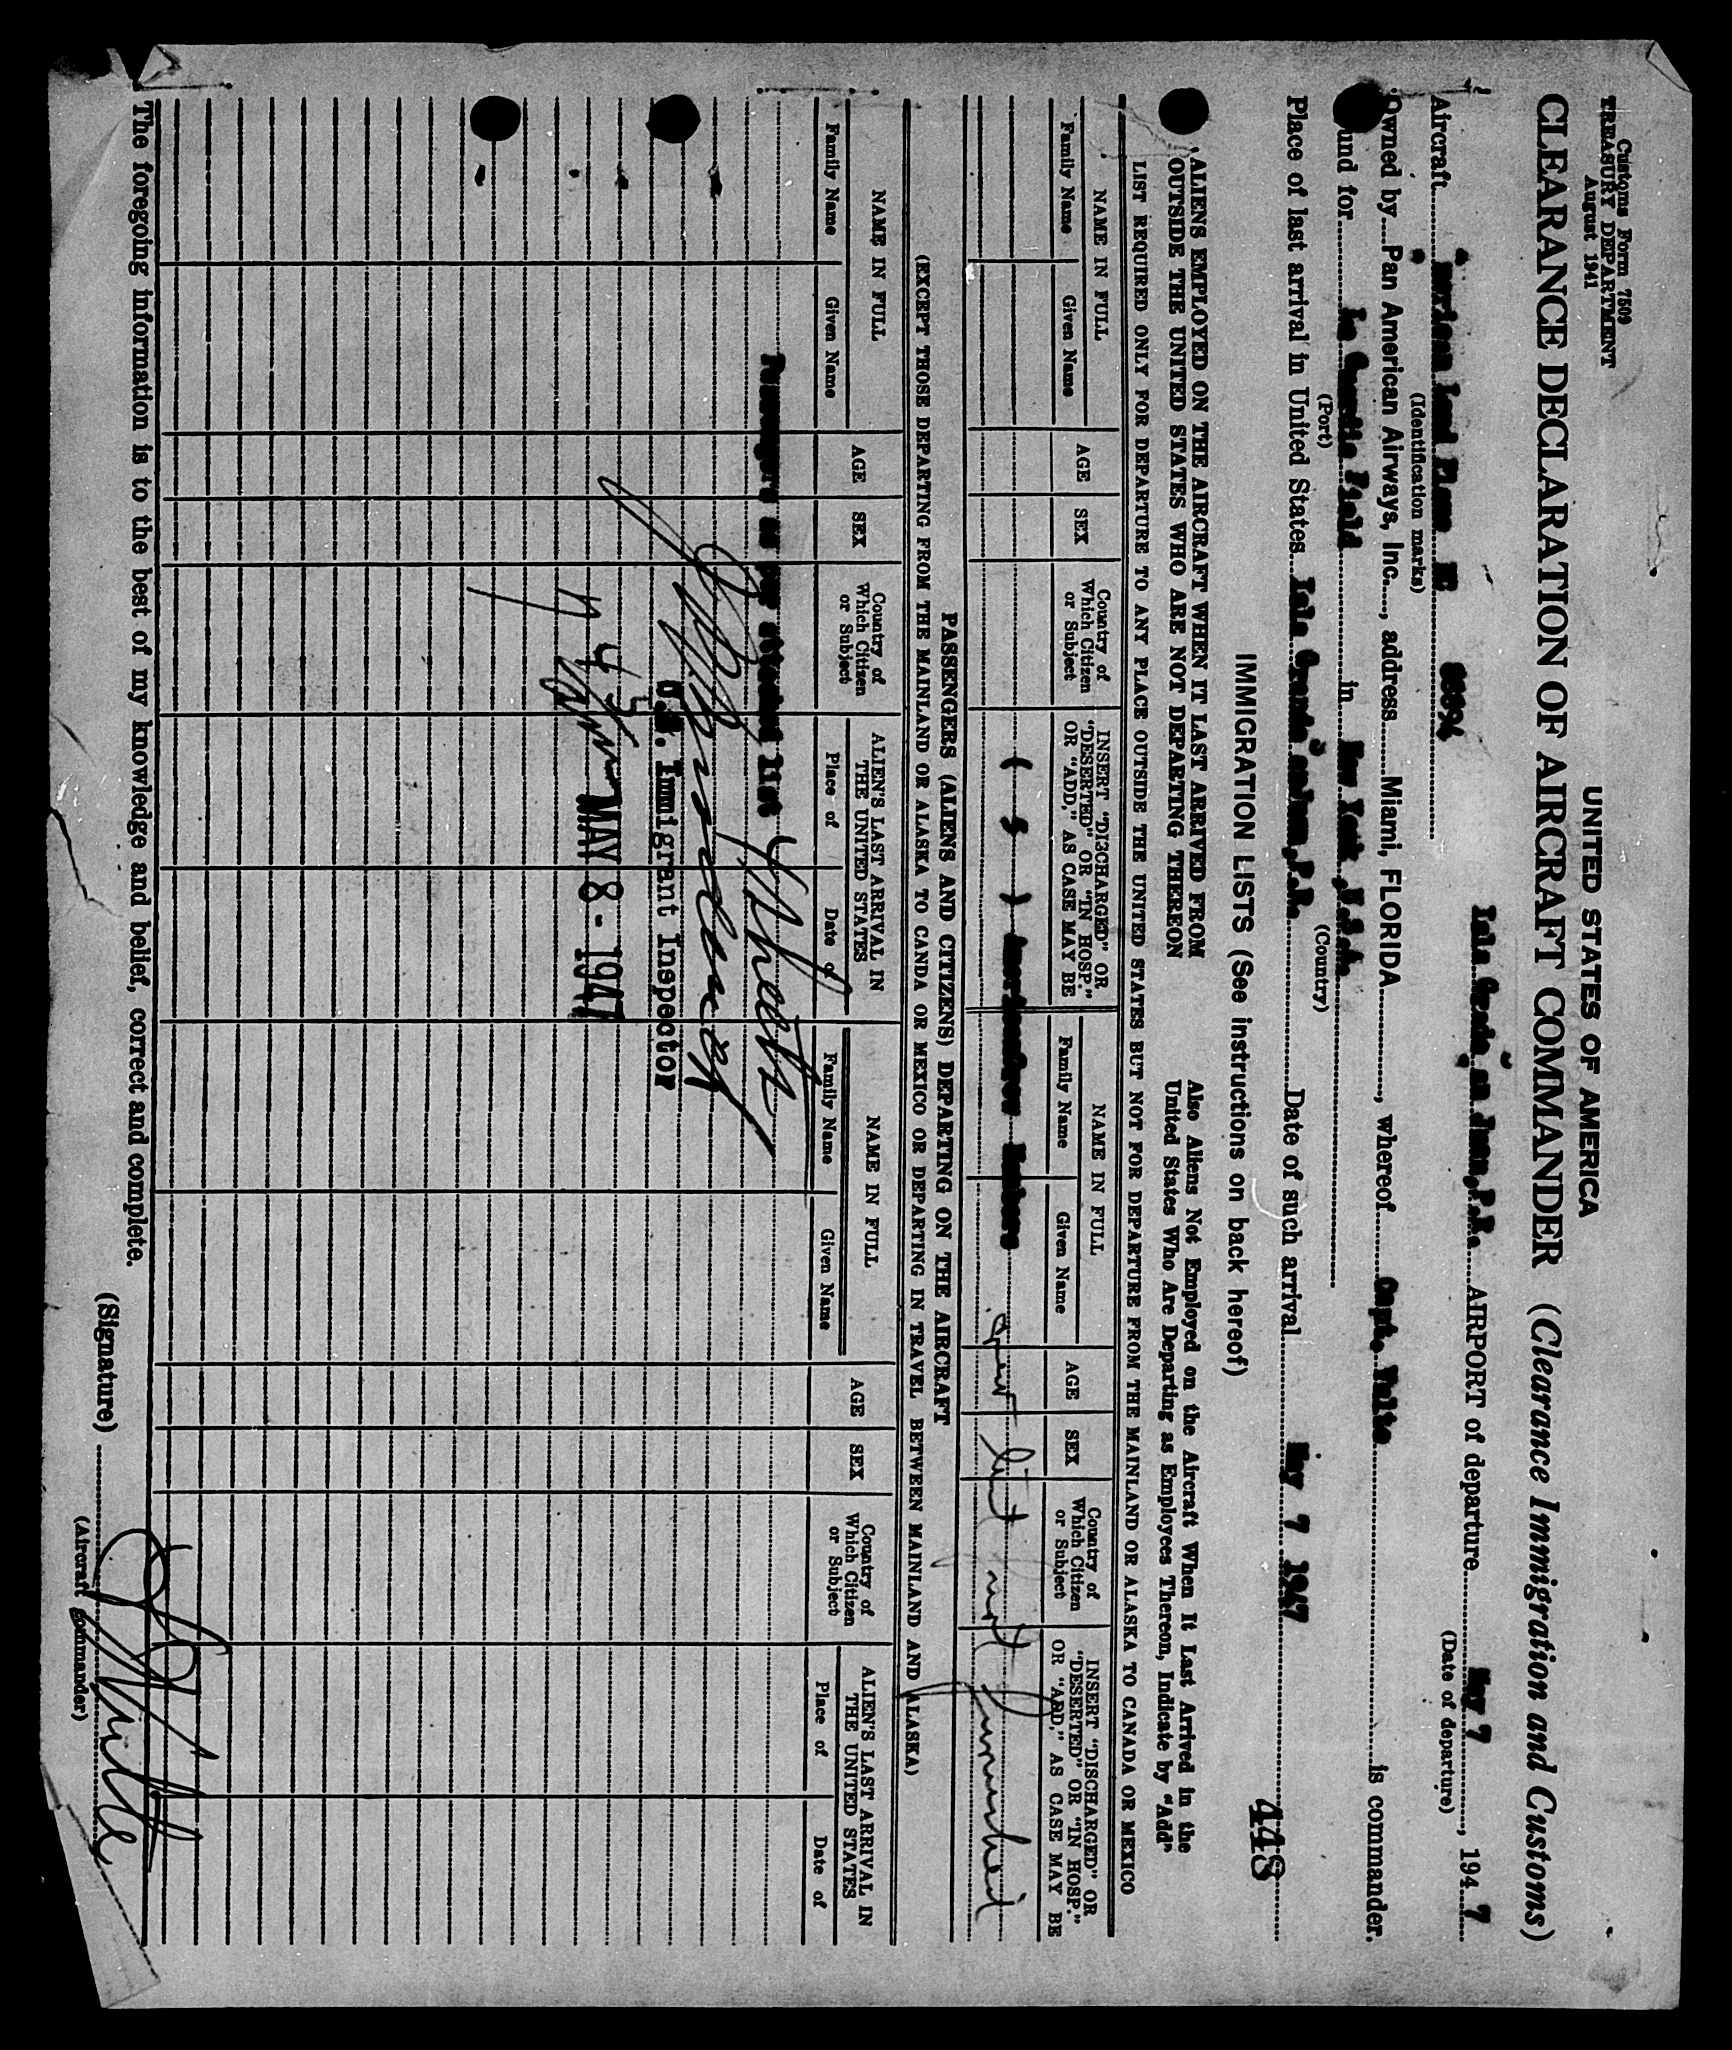 Customs Form 7509
TREASURY DEPARTMENT
August 1941
UNITED STATES OF AMERICA
CLEARANCE DECLARATION OF AIRCRAFT COMMANDER (Clearance Immigration and Customs)
Isla Grande, San Juan, P.R. AIRPORT of departure May 7, 1947
(Date of departure)
Aircraft American Land Plane NC 88894
(Identification marks)
Owned by Pan American Airways, Inc., address Miami, FLORIDA, whereof Capt. is commander.
und for La Guardia Field in New York, U.S.A.
(Port) (Country)
Place of last arrival in United States Isla Grande San Juan, P.R. Date of such arrival May 7 1947
448
IMMIGRATION LISTS (See instructions on back hereof)
ALIENS EMPLOYED ON THE AIRCRAFT WHEN IT LAST ARRIVED FROM OUTSIDE THE UNITED STATES WHO ARE NOT DEPARTING THEREON
Also Aliens Not Employed on the Aircraft When It Last Arrived in the United States Who Are Departing as Employees Thereon, Indicate by "Add"
LIST REQUIRED ONLY FOR DEPARTURE TO ANY PLACE OUTSIDE THE UNITED STATES BUT NOT FOR DEPARTURE FROM THE MAINLAND OR ALASKA TO CANADA OR MEXICO
NAME IN FULL
Family Name Given Name
AGE
SEX
Country of Which Citizen or Subject
INSERT "DISCHARGED" OR "DESERTED" OR "IN HOSP." OR "ADD," AS CASE MAY BE
NAME IN FULL
Family Name Given Name
AGE
SEX
Country of Which Citizen or Subject
INSERT "DISCHARGED" OR "DESERTED" OR "IN HOSP." OR "ADD," AS CASE MAY BE
( 5 ) American Crew Members
list not furnished
PASSENGERS (ALIENS AND CITIZENS) DEPARTING ON THE AIRCRAFT
(EXCEPT THOSE DEPARTING FROM THE MAINLAND OR ALASKA TO CANDA OR MEXICO OR DEPARTING IN TRAVEL BETWEEN MAINLAND AND ALASKA)
NAME IN FULL
Family Name Given Name
AGE
SEX
Country of Which Citizen or Subject
ALIEN'S LAST ARRIVAL IN THE UNITED STATES
Place of Date of
NAME IN FULL
Family Name Given Name
AGE
SEX
Country of Which Citizen or Subject
ALIEN'S LAST ARRIVAL IN THE UNITED STATES
Place of Date of
Passengers as per attached list 4 sheets
U.S. Immigrant Inspector
MAY 8 - 1947
The foregoing information is to the best of my knowledge and belief, correct and complete.
(Signature)
(Aircraft Commander)